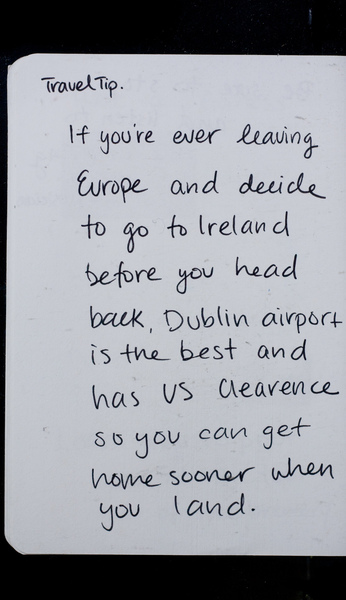 Travel Tip.
If you're ever leaving
Europe and decide
to go to Ireland
before you head
back, Dublin airport
is the best and
has US Clearence
so you can get
home sooner when
you land.